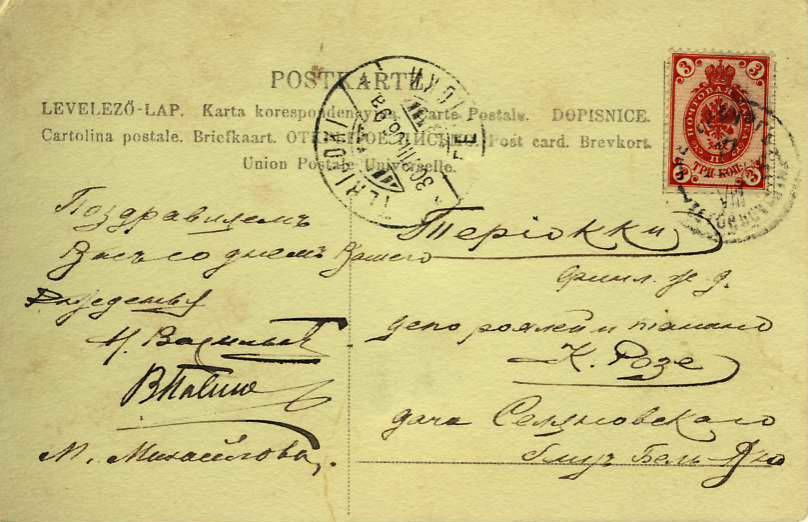 POSTKARTE
LEVELEZŐ-LAP. Karta korespondencyjna. Carte Postale. DOPISNICE.
Cartolina postale. Briefkaart. ОТКРЫТОЕ ПИСЬМО. Post card. Brevkort.
Union Postale Universelle.
TERIJOKI
3
3
ПОЧТОВАЯ
ТРИ КОП.
3
3
Поздравляемъ
Васъ со днемъ Вашего
рожденья
Н. Васильевъ
М. Михайлова.
Терiокки
Финл. ж. д.
депо роялей и пianино
К. Розе
дача Селяновскаго
близъ Бель-Вью